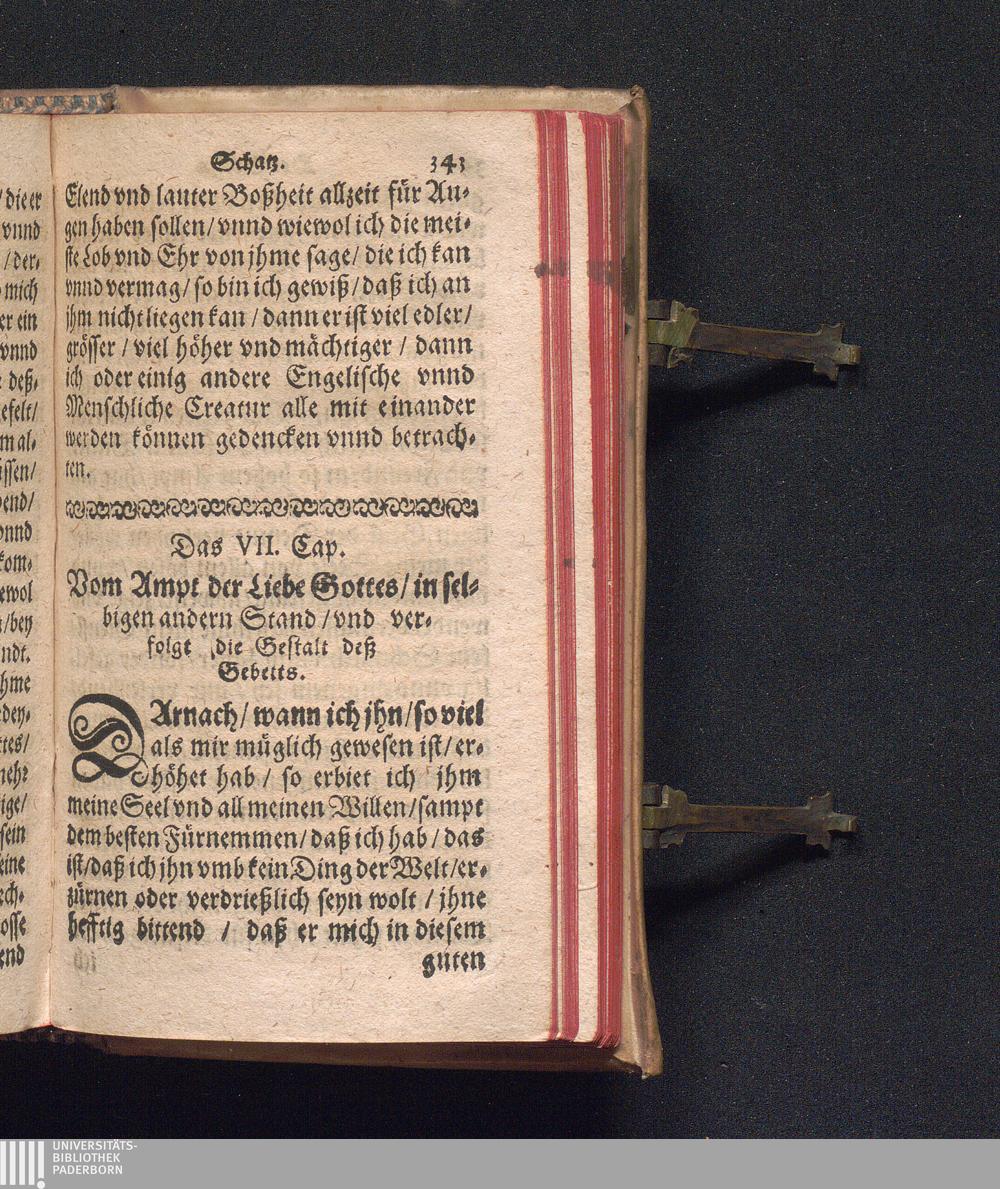 Schatz. 343
Elend vnd lauter Boßheit allzeit für Au-
gen haben sollen / vnnd wiewol ich die mei-
ste Lob vnd Ehr von jhme sage / die ich kan
vnnd vermag / so bin ich gewiß / daß ich an
jhm nicht liegen kan / dann er ist viel edler /
grösser / viel höher vnd mächtiger / dann
ich oder einig andere Engelische vnnd
Menschliche Creatur alle mit einander
werden können gedencken vnnd betrach-
ten.
Das VII. Cap.
Vom Ampt der Liebe Gottes / in sel-
bigen andern Stand / vnd ver-
folgt die Gestalt deß
Gebetts.
DArnach / wann ich jhn / so viel
als mir müglich gewesen ist / er-
höhet hab / so erbiet ich jhm
meine Seel vnd all meinen Willen / sampt
dem besten Fürnemmen / daß ich hab / das
ist / daß ich jhn vmb kein Ding der Welt / er-
zürnen oder verdrießlich seyn wolt / jhne
hefftig bittend / daß er mich in diesem
guten
/ die er
vnnd
/ der-
mich
er ein
vnnd
deß-
efelt /
m al-
issen /
end /
vnnd
kom-
ewol
/ bey
ndt.
hme
den-
tes /
mehr
ige /
sein
eine
ech-
osse
end
UNIVERSITÄTS-
BIBLIOTHEK
PADERBORN